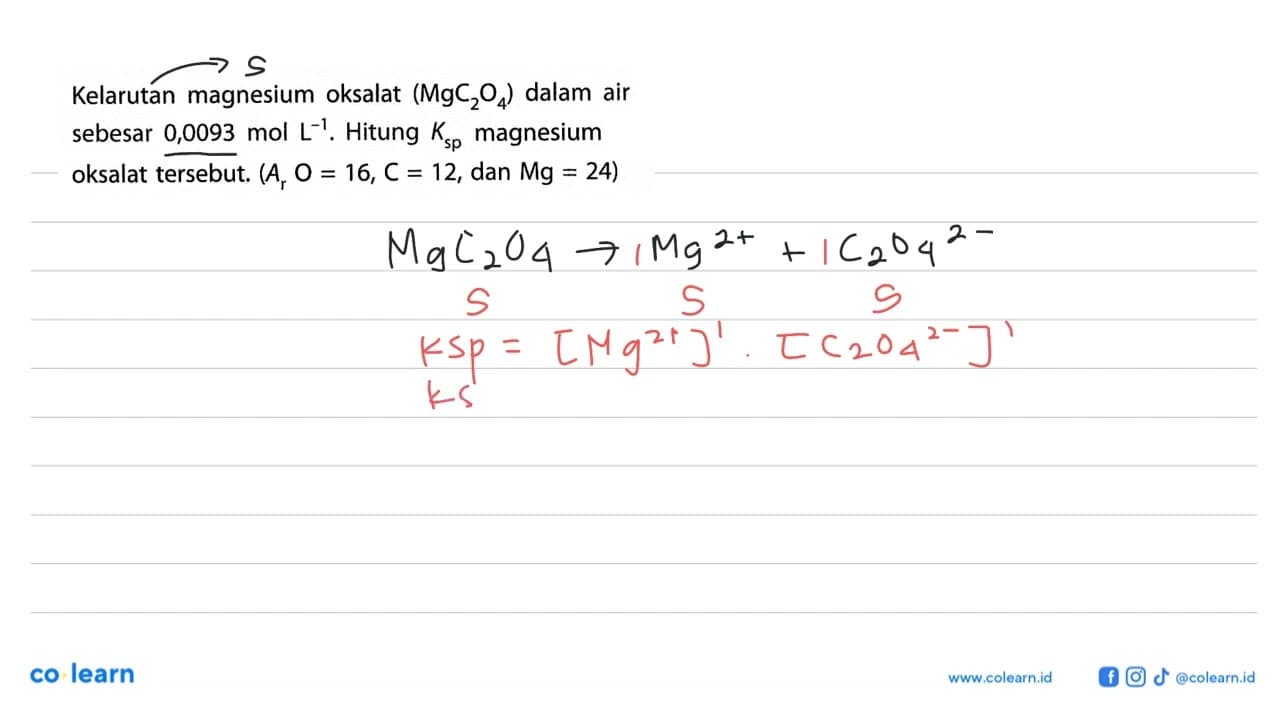 → S
Kelarutan magnesium oksalat (MgC₂O₄) dalam air
sebesar 0,0093 mol L⁻¹. Hitung Kₛₚ magnesium
oksalat tersebut. (Aᵣ O = 16, C = 12, dan Mg = 24)
MgC₂O₄ → 1 Mg²⁺ + 1 C₂O₄²⁻
S S S
Ksp = [Mg²⁺]¹ . [C₂O₄²⁻]¹
ks
co learn
www.colearn.id @colearn.id